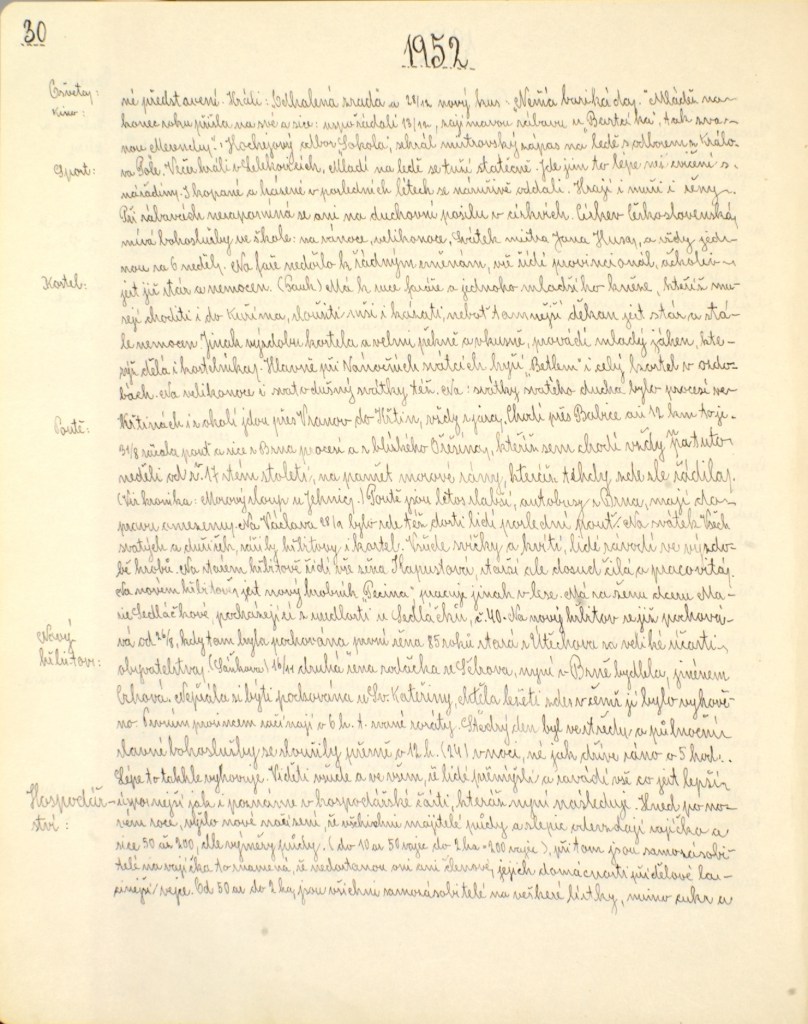 30
1952
Osvěta,
Kino:
né představení. Hráli: Odhalená zrada a 28/12 nový kus "Neříá bariká daj." Mládež na-
konec roku přišla na své a sice: uspořádali 13/12, zajímavou zábavu u "Bartáka", tak zva-
nou Merendu". Hockejový odbor "Sokola", sehrál mistrovský zápas na ledě s odborem z Králo-
Sport:
va Pole. Včera hráli v Lelekovicích, Mladí na ledě se tuží statečně. Jde jim to lépe než cvičení s
nářadím. I kopané a házené v posledních létech se náruživě oddali. Hrají i muži i ženy.
Při zábavách nezapomíná se ani na duchovní posilu v církvích. Církev Československá,
mívá bohoslužby ve škole: na vánoce, velikonoce, Svátek mistra Jana Husa, a vždy jed-
nou za 6 neděl. Na faře nedošlo k řádným změnám, vše řídí provincionál, ačkoliv
Kostel:
jest již stár a nemocen. (Pauk) Má k ruce faráře a jednoho mladšího kněze, kteříž mu-
sejí choditi i do Kuřima, sloužiti mši i kázati, neboť tamnější děkan jest stár a stá-
le nemocen. Jinak výzdobu kostela a velmi pěkně a vkusně, provádí mladý jáhen, kte-
rýž dělá i kostelníka. Hlavně při Vánočních svátcích hýří "Betlem" i celý kostel v ozdo-
bách. Na velikonoce i svatodušný svátky též. Na: svátky svatého ducha bylo procesí ve
Křtinách i z okolí jdou přes Vranov do Křtin, vždy z jara. Chodí přes Babice asi 12 km tvoje.
Poutě:
31/8 začala pouť a sice z Brna procesí a z blízkého Ořešína, kteříž sem chodí vždy tuto
neděli od r. 17 stém století, na pamět morové rány, kteráž téhdy zde zle řádila.
(Viz kronika: Morový sloup u Jehnic.) Poutě jsou létos slabší, autobusy z Brna, mají do-
pravu omezenu. Na Václava 28/9 bylo zde též dosti lidí poslední pouť. Na svátek Všech
svatých a dušiček, zářily hřbitovy i kostel. Všude svíčky a kvítí, lidé závodí ve výzdo-
bě hrobů. Na starém hřbitově řídí vše žena Kapustova, starší ale dosud čilá a pracovitá.
Na novém hřbitově, jest nový hrobník "Pecina" pracuje jinak v lese. Má za ženu dceru Ma-
rie Sedláčkové, pocházející z usedlosti u Sedláčků, č. 40. Na nový hřbitov se již pochová-
Nový
hřbitov:
vá od 26/8, kdy tam byla pochována první žena 85 roků stará z Útěchova za veliké účasti
obyvatelstva. 16/11 druhá žena rodačka ze Lčhova, nyní v Brně bydlela, jménem
Crhová. Nepřála si býti pochována u Sv. Kateřiny, chtěla ležeti zde v zemi jí bylo vyhově-
no. Prvním prosincem začínají o 6 h. t. zvané roráty. Štědrý den byl ve středu a půlnoční
slavné bohoslužby se sloužily přesně o 12 h. (24) v noci, né jak dříve ráno o 5 hod..
Lépe to takhle vyhovuje. Viděti všude a ve všem, že lidé přemýšlí a zavádí vše co jest lepší
Hospodář-
ství:
úspornější jak i poznáme v hospodářské části, kteráž nyní následuje. Hned po no-
vém roce, vyšlo nové nařízení, že všichni majitelé půdy a slepic odevzdají vajíčka a
sice 50 až 200, dle výměry půdy. (do 10 ar 50 vajec do 2 ha = 200 vajec), při tom jsou samozásobi-
telé na vajíčka to znamená, že nedostanou oni ani členové, jejich domácnosti přídělové la-
cinější vejce. Od 50 ar do 2 ha, jsou všichni samozásobitelé na veškeré lístky, mimo cukr a